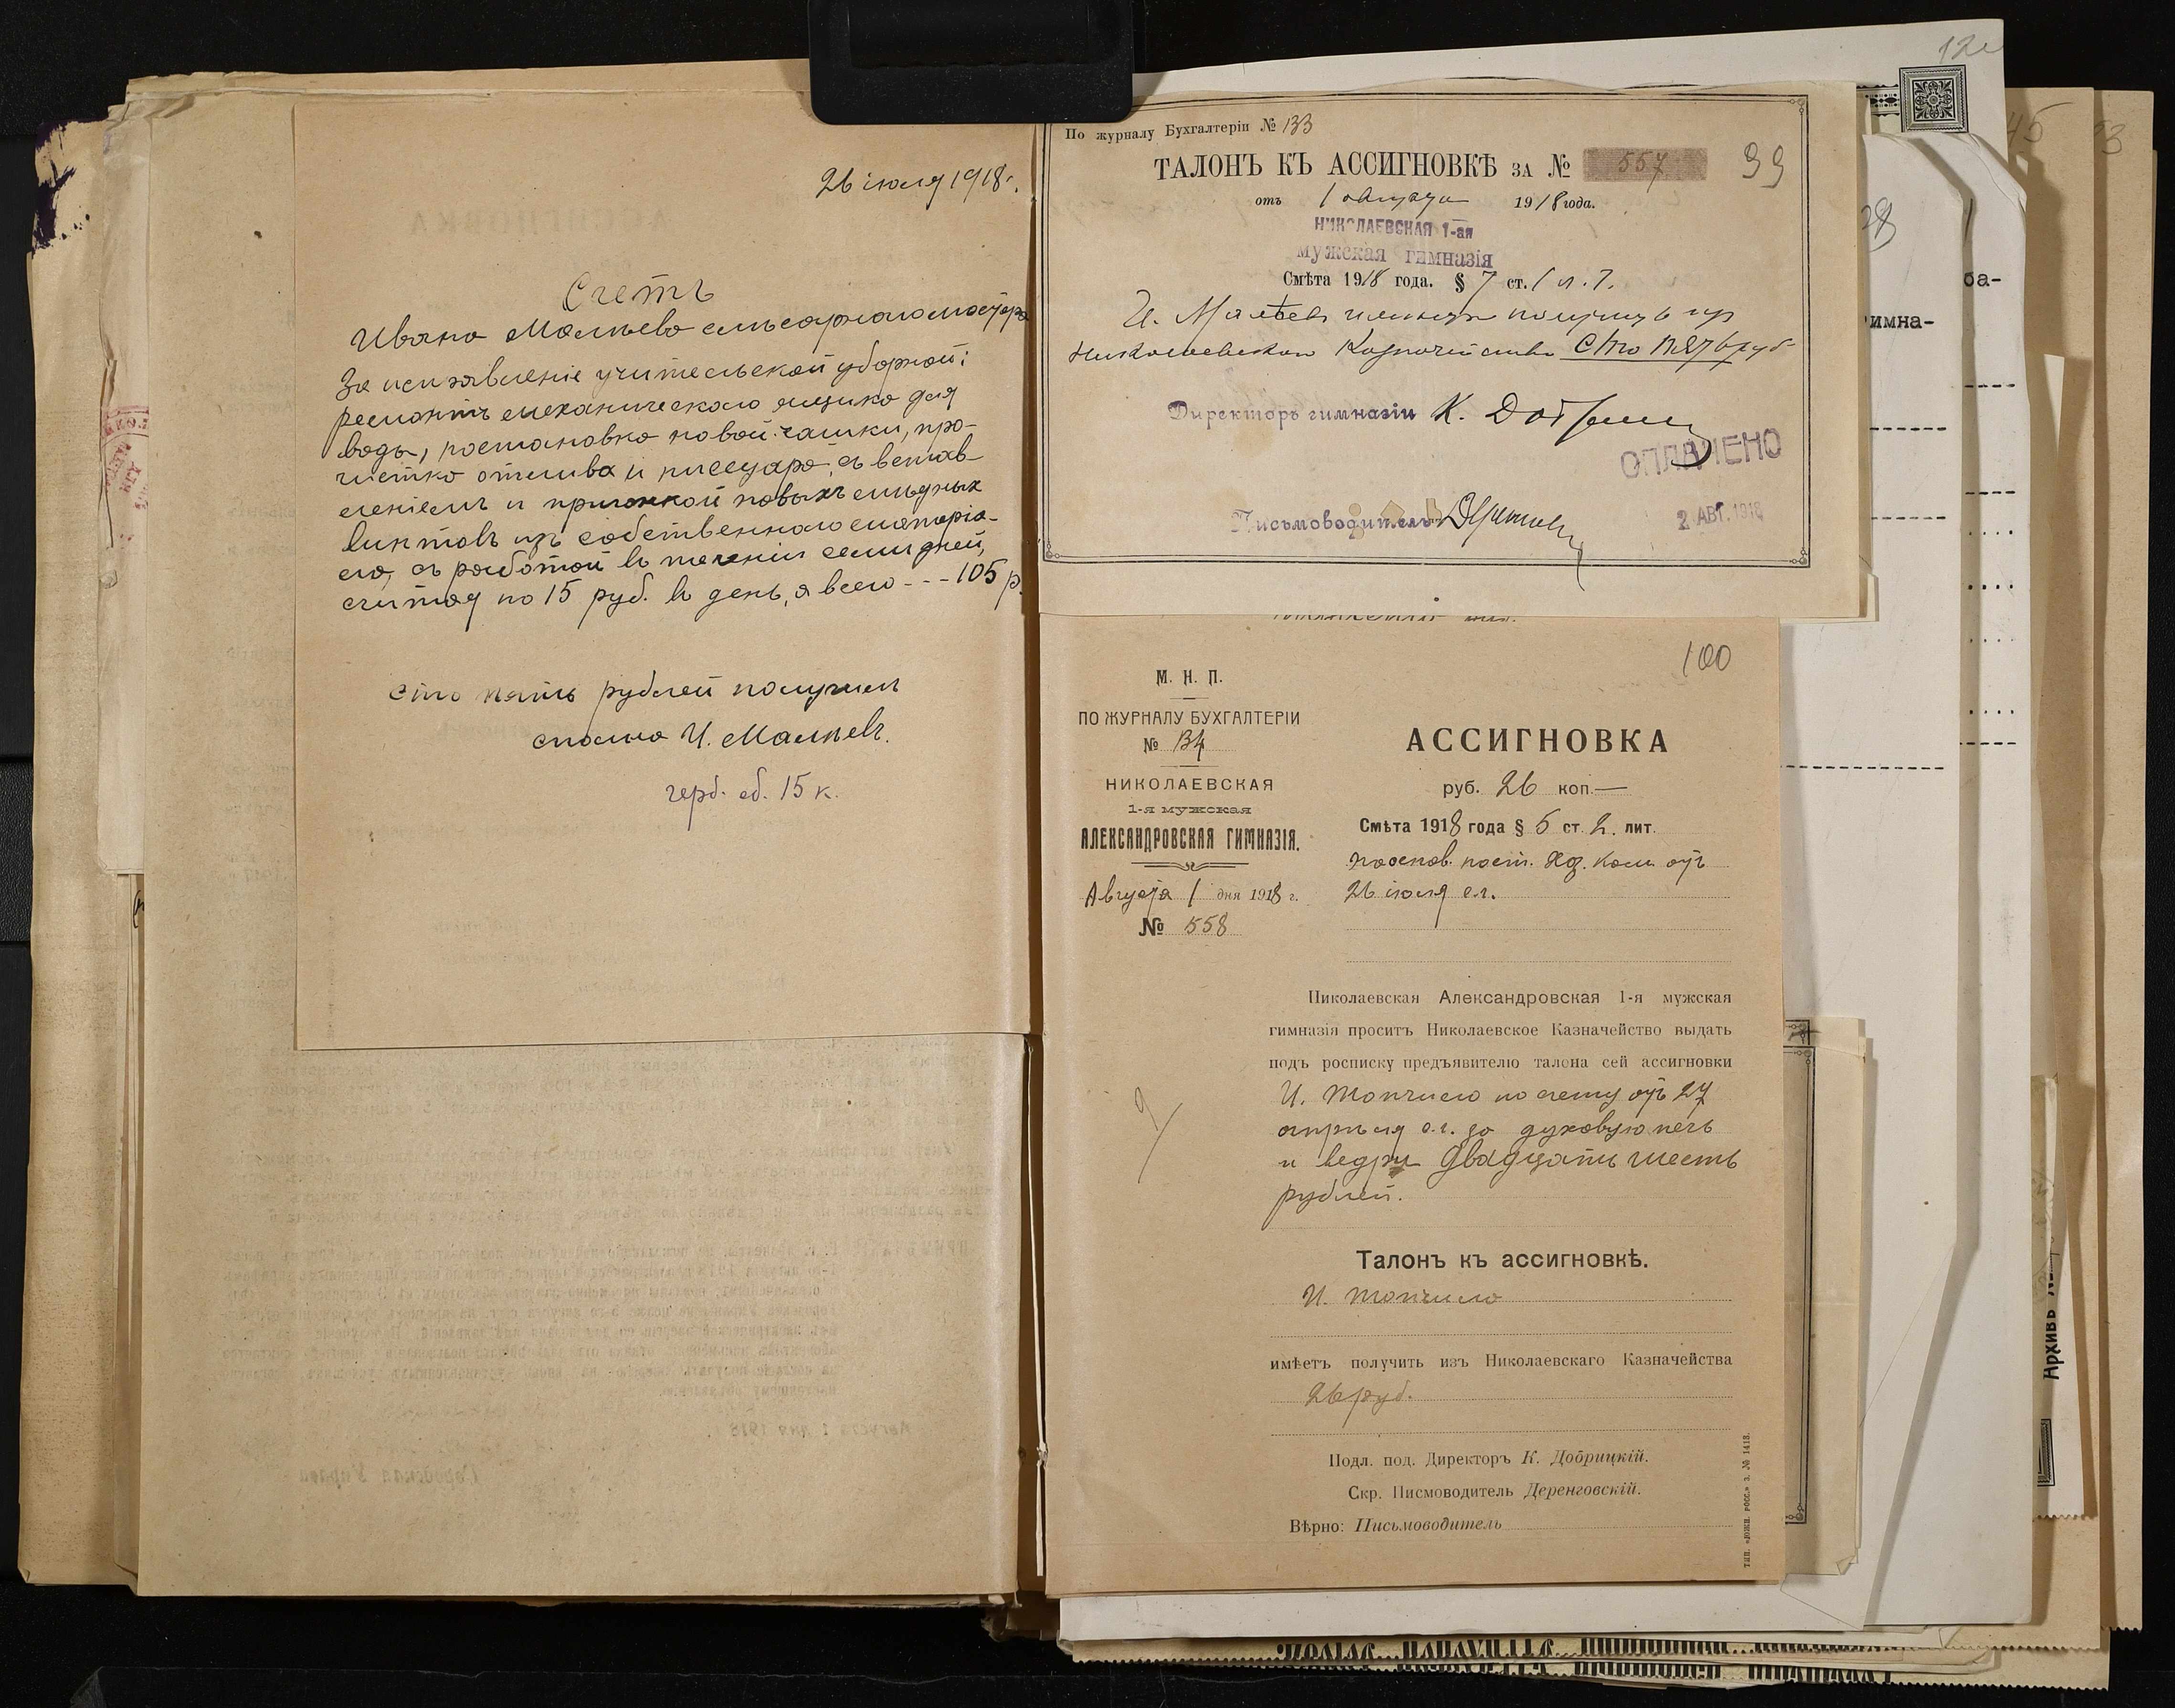 26 іюля 1918 г.
Счетъ
Ивана Малѣева слѣсарнаго мастера
За исправленіе учительской уборной:
ремонтъ механическаго ящика для
воды, постановка новой чашки, про-
чистка отлива и писсуара, съ встав-
леніемъ и пригонкой новыхъ мѣдных
винтовъ изъ собственнаго матеріа-
ла, съ работой въ теченіи семи дней,
считая по 15 руб. въ день, а всего --- 105 р.
сто пять рублей получил
сполна И. Малѣевъ.
герб. сб. 15 к.
По журналу Бухгалтеріи № 133
ТАЛОНЪ КЪ АССИГНОВКѢ ЗА № 557
99
отъ 1 августа 1918 года.
НИКОЛАЕВСКАЯ 1-ая
мужская гимназія
Смѣта 1918 года. § 7 ст. 1 л. 7.
И. Малѣевъ имѣетъ получить из
Николаевского Казначейства Сто пять руб
Директоръ гимназіи К.
ОПЛАЧЕНО
Письмоводитель
2 АВГ. 1918
100
М. Н. П.
ПО ЖУРНАЛУ БУХГАЛТЕРІИ
№ 134
НИКОЛАЕВСКАЯ
1-я мужская
АЛЕКСАНДРОВСКАЯ ГИМНАЗІЯ.
Августа 1 дня 1918 г.
№ 558
АССИГНОВКА
руб. 26 коп. —
Смѣта 1918 года § 5 ст. 2. лит.
на основ. пост. Хоз. Ком. отъ
26 іюля с.г.
Николаевская Александровская 1-я мужская
гимназія проситъ Николаевское Казначейство выдать
подъ росписку предъявителю талона сей ассигновки
И. Топчило по счету отъ 27
апрѣля с.г. за духовую печь
и ведра Двадцать шесть
рублей.
Талонъ къ ассигновкѣ.
И. Топчило
имѣетъ получить изъ Николаевскаго Казначейства
26 руб.
Подл. под. Директоръ К. Добрицкій.
Скр. Письмоводитель Деренговскій.
Вѣрно: Письмоводитель
тип. «южн. росс.» з. № 1413.
45
53
28
ба-
имна-
Архивъ